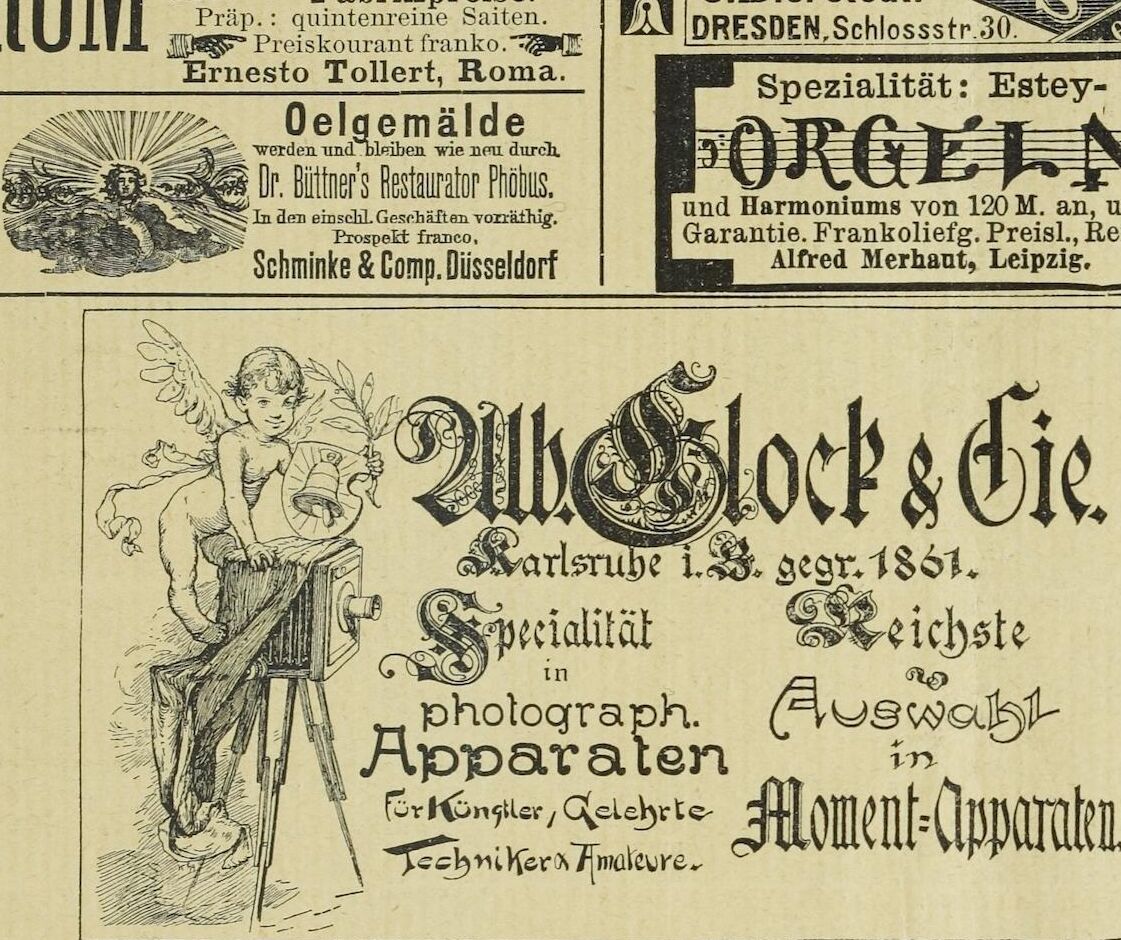 Präp.: quintenreine Saiten.
Preiskourant franko.
Ernesto Tollert, Roma.
Oelgemälde
werden und bleiben wie neu durch
Dr. Büttner's Restaurator Phöbus.
In den einschl. Geschäften vorräthig.
Prospekt franco,
Schminke & Comp. Düsseldorf
DRESDEN, Schlossstr. 30.
Spezialität: Estey-
ORGELN
und Harmoniums von 120 M. an, u
Garantie. Frankoliefg. Preisl., Re
Alfred Merhaut, Leipzig.
Alb. Glock & Cie.
Karlsruhe i. B. gegr. 1861.
Specialität
in
photograph.
Apparaten
für Künstler, Gelehrte
Techniker & Amateure.
Reichste
Auswahl
in
Moment-Apparaten.